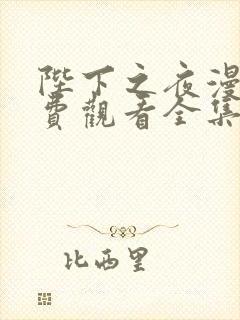 陛下之夜漫
費觀看全集
比西里